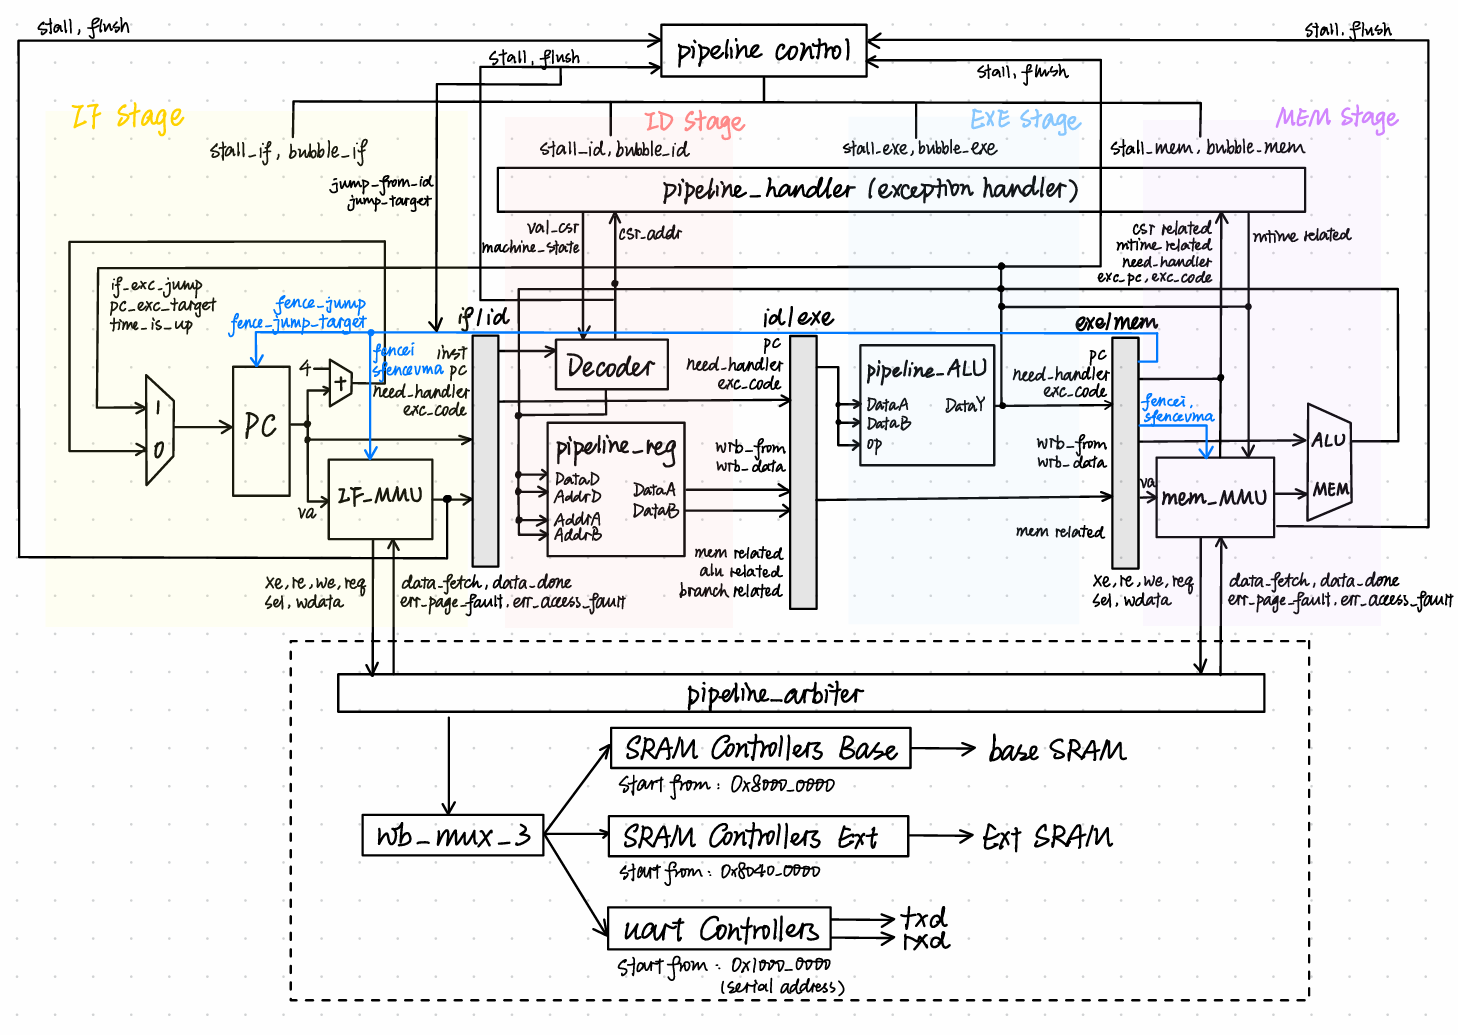 stall, flush
stall, flush
pipeline control
stall, flush
stall, flush
IF Stage
ID Stage
EXE Stage
MEM Stage
stall_if, bubble_if
stall_id, bubble_id
stall_exe, bubble_exe
stall_mem, bubble_mem
jump_from_id
jump_target
pipeline_handler (exception handler)
val_csr
machine_state
csr_addr
csr related
mtime_related
need_handler
exc_pc, exc_code
mtime related
if_exc_jump
pc_exc_target
time_is_up
fence_jump
fence_jump_target
if/id
id/exe
exe/mem
fencei
sfencevma
inst
pc
need_handler
exc_code
Decoder
pc
need_handler
exc_code
pipeline_ALU
DataA
DataB
op
DataY
pc
need_handler
exc_code
fencei,
sfencevma
4
+
1
0
PC
IF_MMU
va
pipeline_reg
DataD
AddrD
AddrA
AddrB
DataA
DataB
wrb_from
wrb_data
wrb_from
wrb_data
va
mem_MMU
ALU
MEM
mem related
alu related
branch related
mem related
xe, re, we, req
sel, wdata
data_fetch, data_done
err_page_fault, err_acess_fault
xe, re, we, req
sel, wdata
data_fetch, data_done
err_page_fault, err_acess_fault
pipeline_arbiter
SRAM Controllers Base
base SRAM
start from : 0x8000_0000
wb_mux_3
SRAM Controllers Ext
Ext SRAM
start from : 0x8040_0000
uart Controllers
txd
rxd
start from : 0x1000_0000
(serial address)